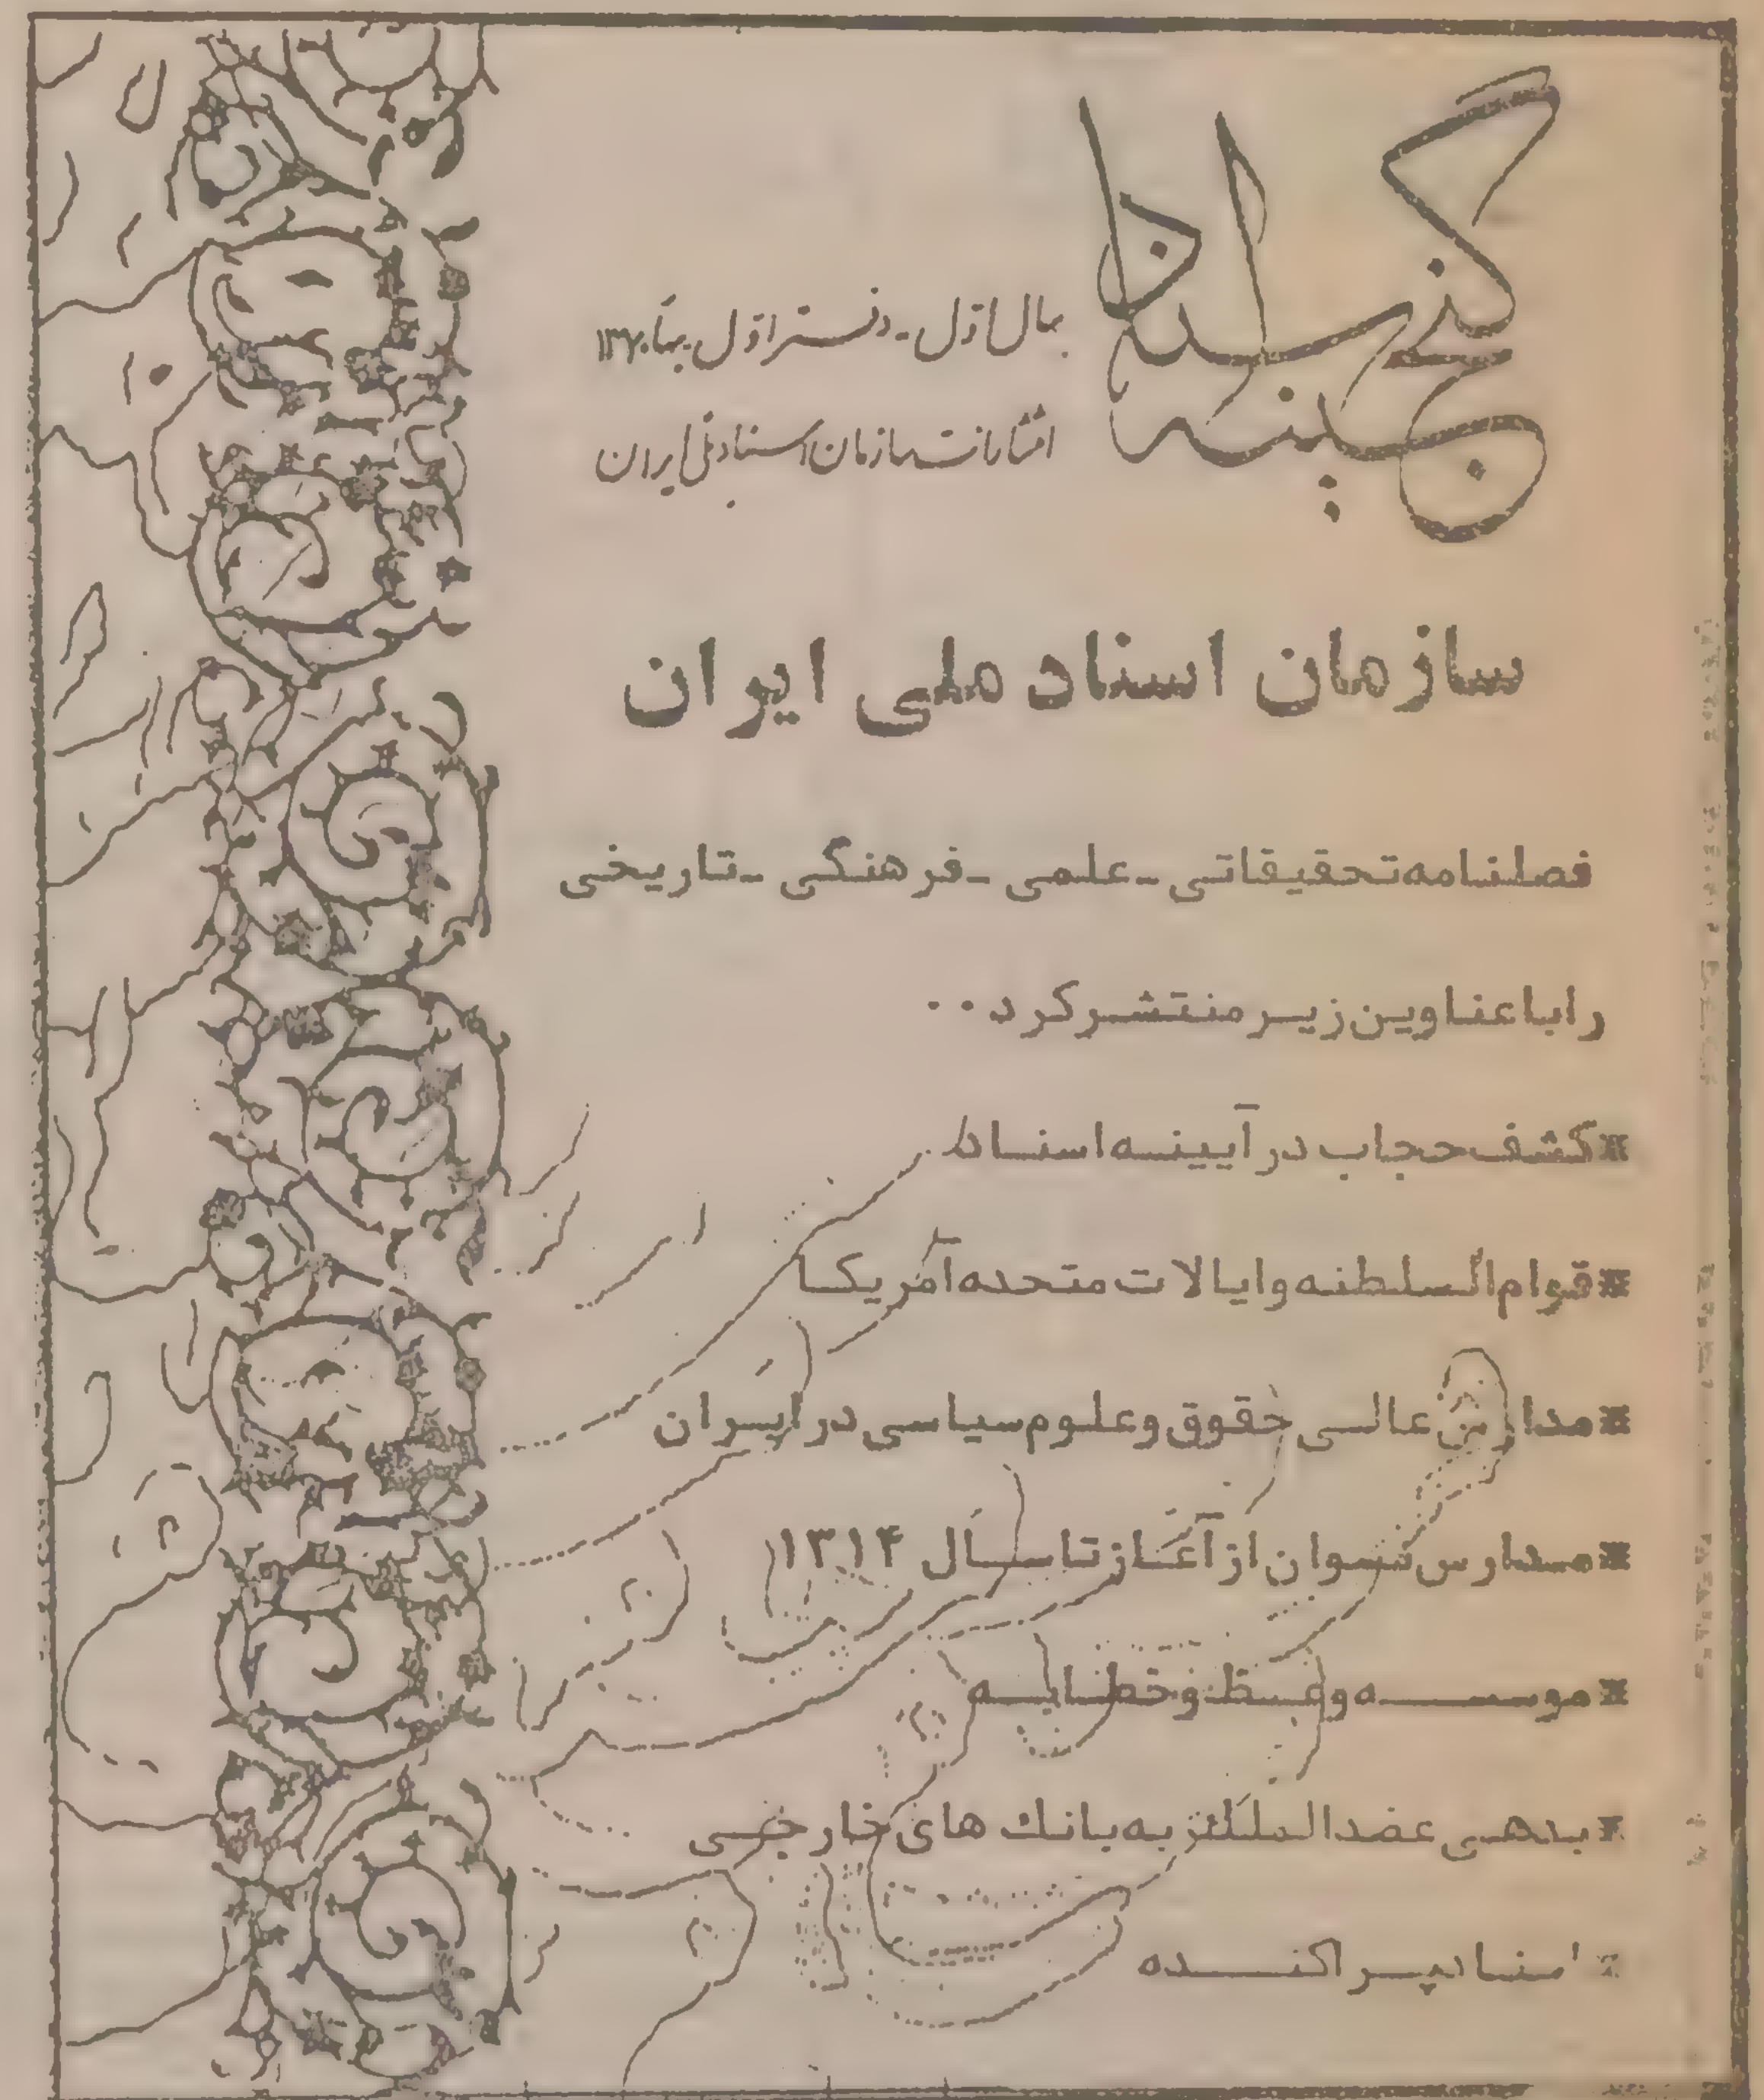 گنجینه اسناد
سال اول - دفتر اول - بهار ۱۳۷۰
انتشارات سازمان اسناد ملی ایران
سازمان اسناد ملی ایران
فصلنامه تحقیقاتی - علمی - فرهنگی - تاریخی
را با عناوین زیر منتشر کرد..
کشف حجاب در آیینه اسناد
قوام السلطنه و ایالات متحده آمریکا
مدارس عالی حقوق و علوم سیاسی در ایران
مدارس نسوان از آغاز تا سال ۱۳۱۴
موسسه وعظ و خطابه
بدهی عضدالملک به بانک های خارجی
اسناد پراکنده